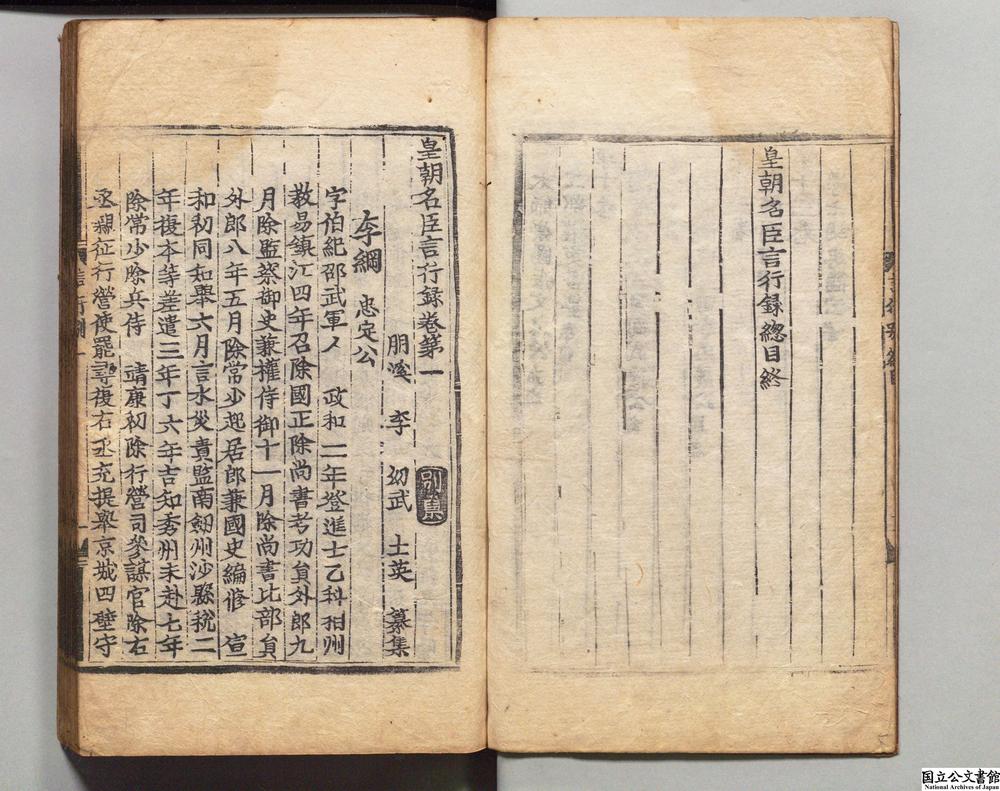 皇朝名臣言行録總目終
皇朝名臣言行録卷第一
別集
朋溪 李 幼武 士英 纂集
李綱 忠定公
字伯紀邵武軍人 政和二年登進士乙科相州
教易鎮江四年召除國正除尚書考功員外郎九
月除監察御史兼權侍御十一月除尚書比部員
外郎八年五月除常少起居郎兼國史編修 宣
和初同知舉六月言水災責監南劔州沙縣税二
年復本等差遣三年丁六年吉知秀州未赴七年
除常少除兵侍 靖康初除行營司參謀官除右
丞親征行營使罷尋復右丞充提舉京城四壁守
国立公文書館
National Archives of Japan